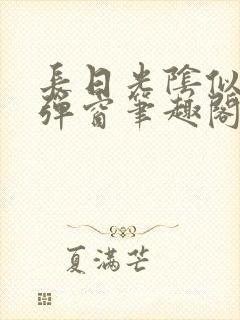 長日光陰似
彈窗筆趣閣
夏滿芒